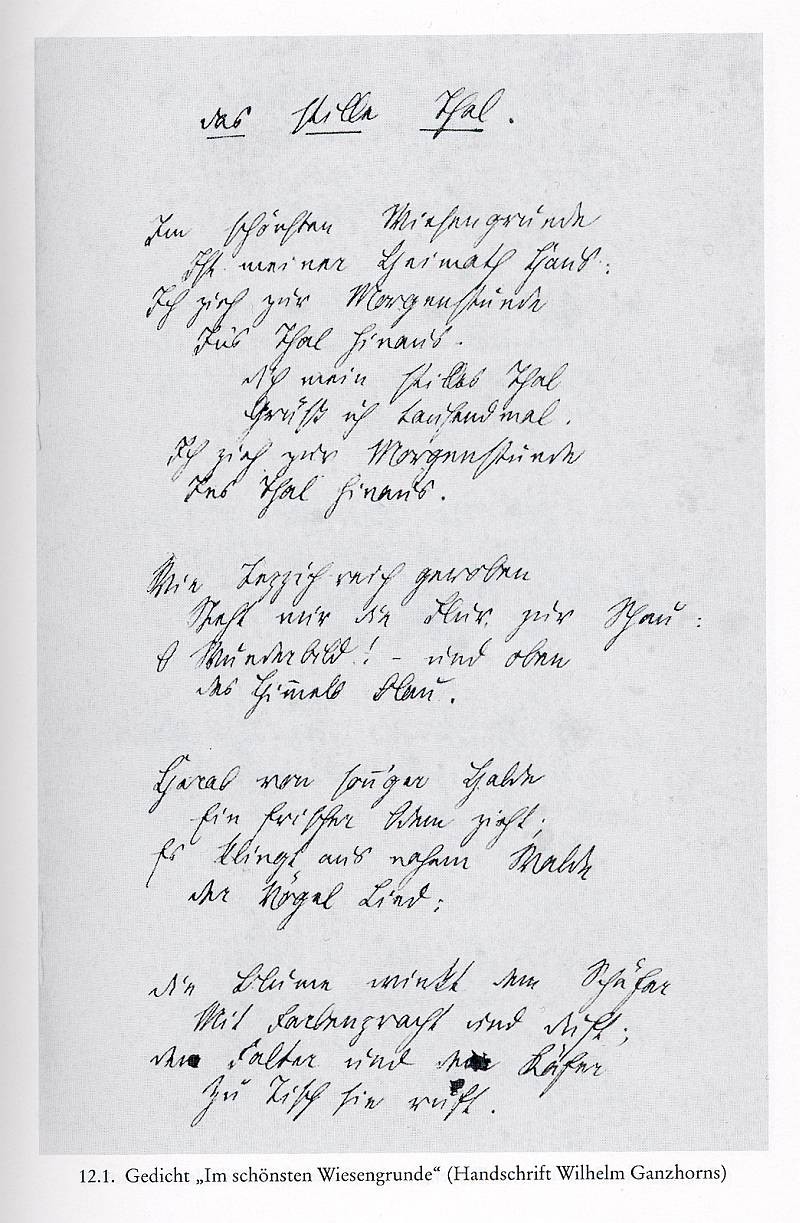 das stille Thal.
Im schönsten Wiesengrunde
Ist meiner Heimath Haus:
Ich zieh zur Morgenstunde
Ins Thal hinaus.
dich mein stilles Thal
Grüß ich tausendmal.
Ich zieh zur Morgenstunde
Ins Thal hinaus.
Wie Teppich reich gewoben
Steht mir die Flur zur Schau:
O Wunderbild! – und oben
des Him̄els Blau.
Herab von son̄'ger Halde
Ein frischer Odem zieht;
Es klingt aus nahem Walde
der Vögel Lied;
die Blume winkt dem Schäfer
Mit Farbenpracht und duft;
den Falter und den Käfer
Zu Tisch sie ruft.
12.1. Gedicht „Im schönsten Wiesengrunde“ (Handschrift Wilhelm Ganzhorns)